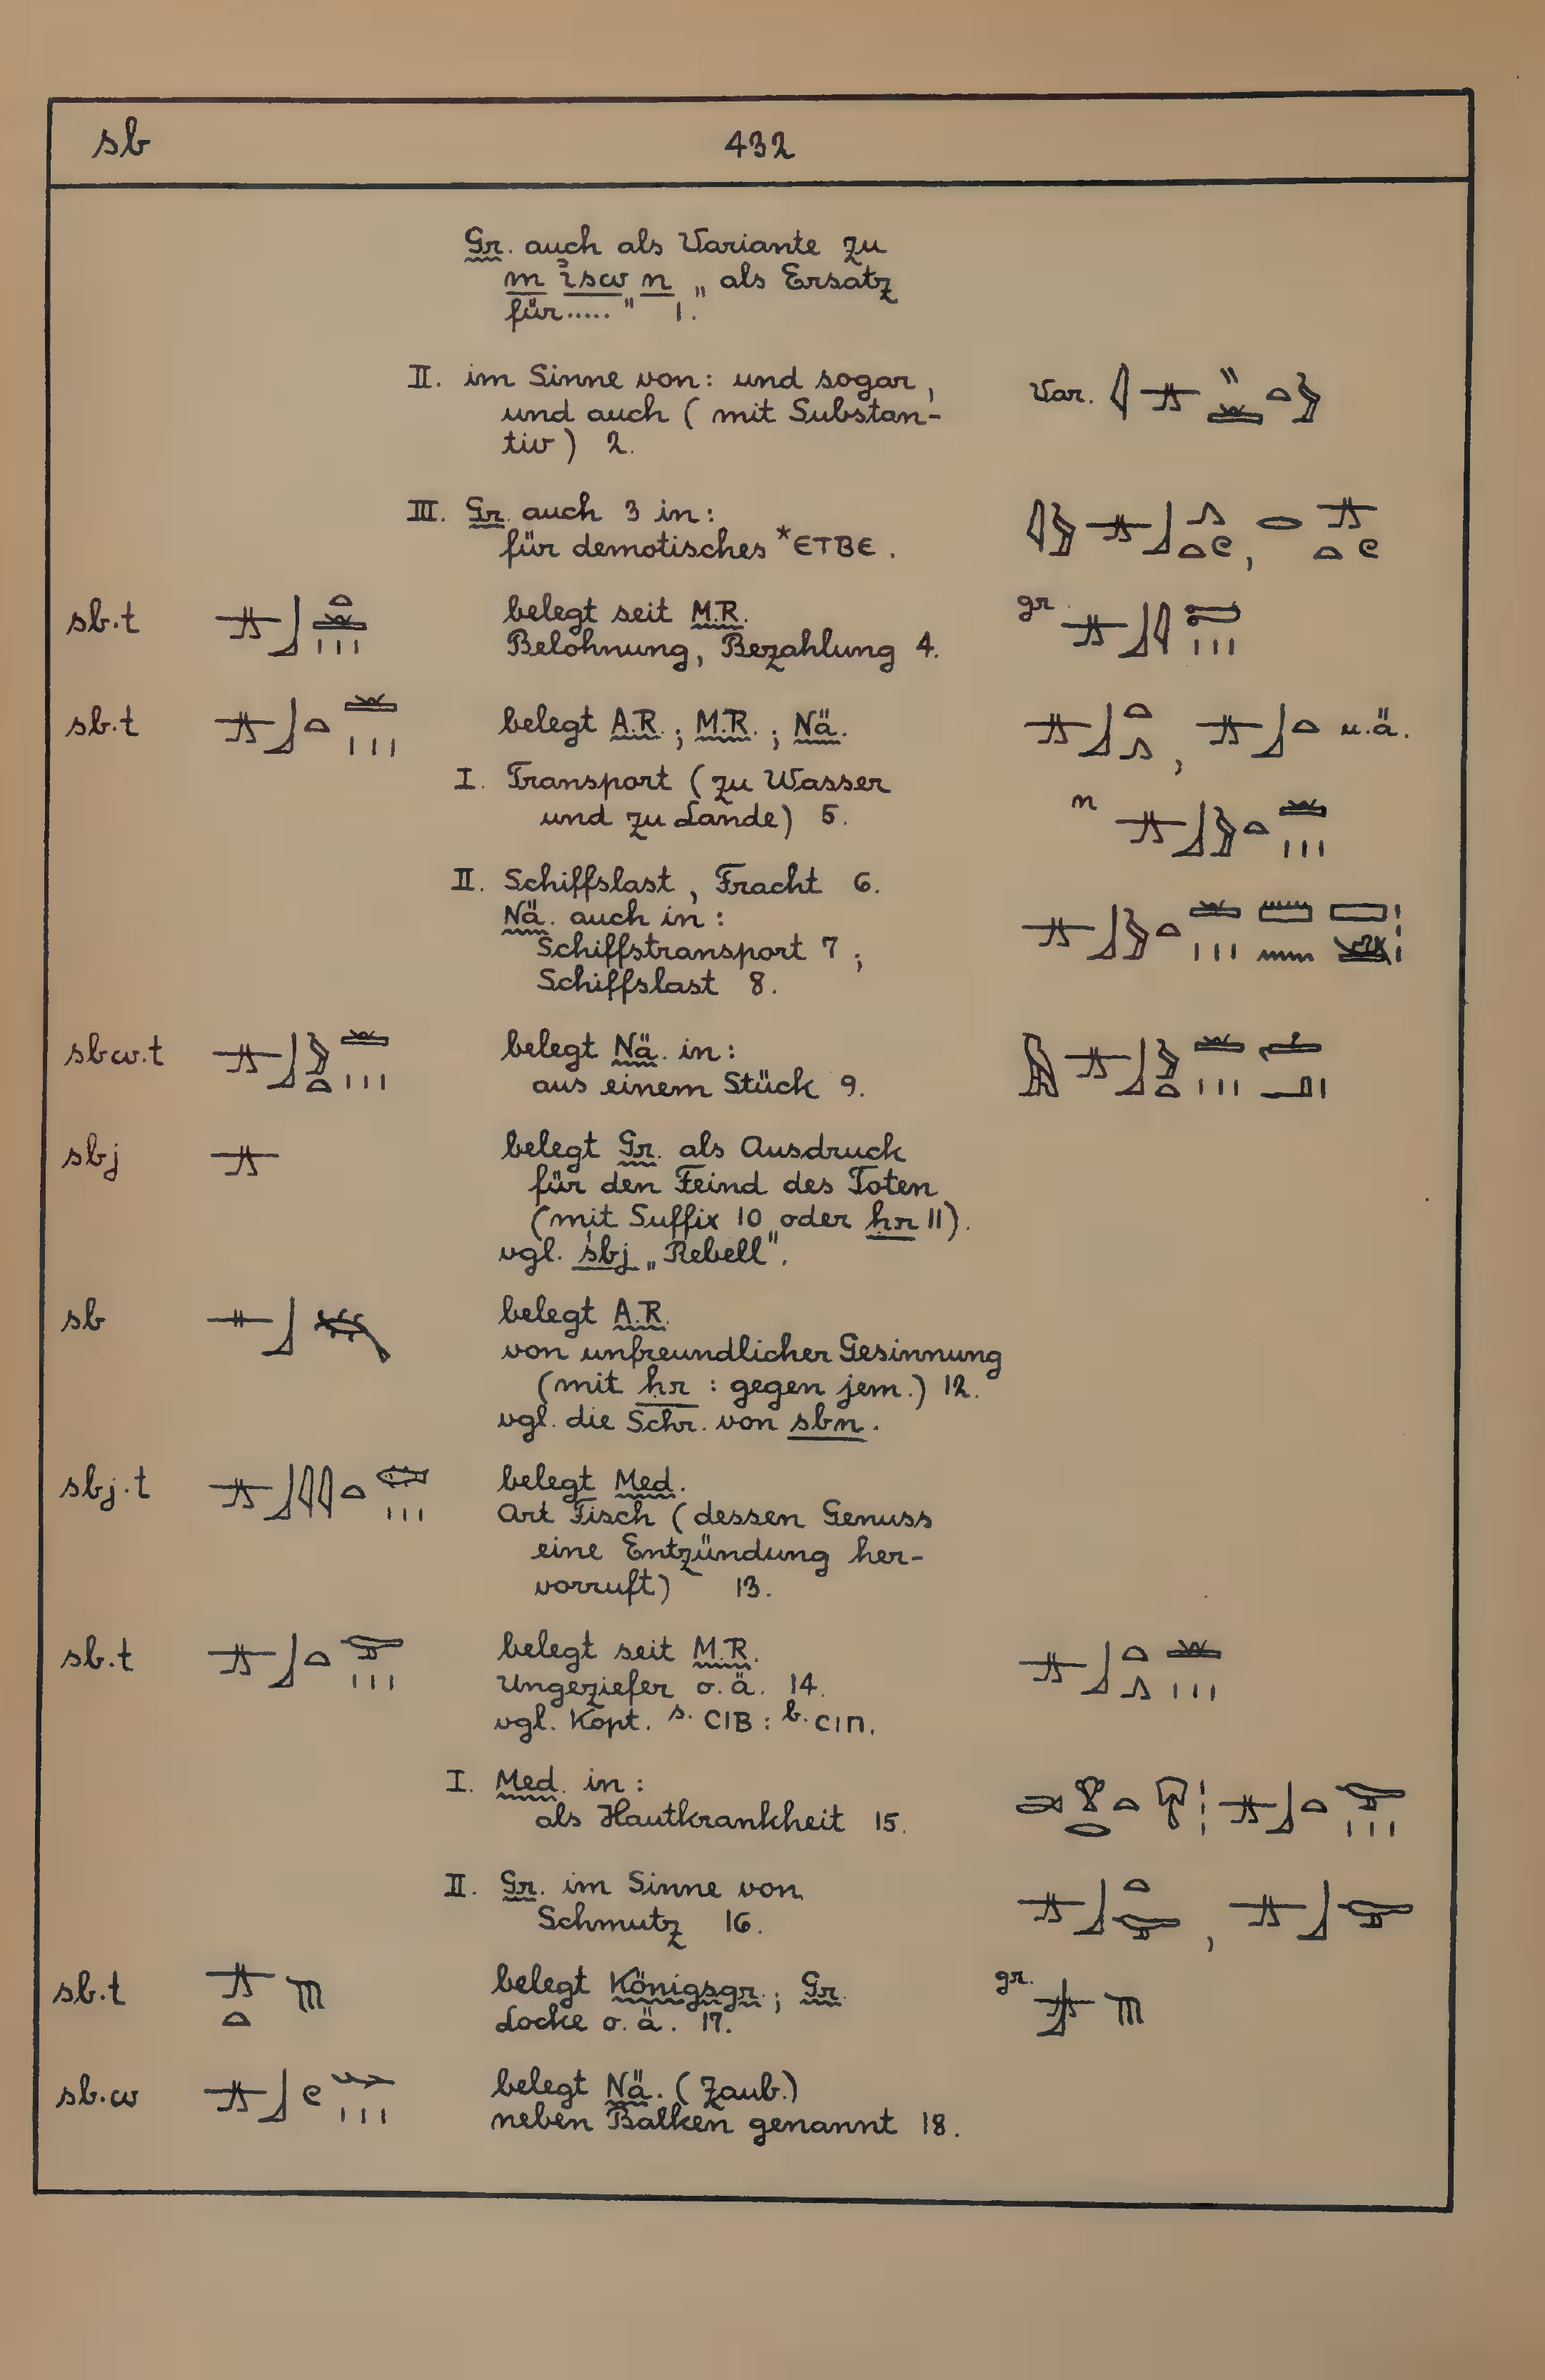 sb 432
Gr. auch als Variante zu
m isw n „als Ersatz
für....." 1.
II. im Sinne von: und sogar, Var.
und auch (mit Substan-
tiv) 2.
III. Gr. auch 3 in:
für demotisches *ⲈⲦⲂⲈ.
sb.t belegt seit M.R. gr.
Belohnung, Bezahlung 4.
sb.t belegt A.R.; M.R.; Nä. u.ä.
I. Transport (zu Wasser n
und zu Lande) 5.
II. Schiffslast, Fracht 6.
Nä. auch in:
Schiffstransport 7;
Schiffslast 8.
sbw.t belegt Nä. in:
aus einem Stück 9.
sbj belegt Gr. als Ausdruck
für den Feind des Toten
(mit Suffix 10 oder ḥr 11).
vgl. śbj „Rebell".
sb belegt A.R.
von unfreundlicher Gesinnung
(mit ḥr : gegen jem.) 12.
vgl. die Schr. von sbn.
sbj.t belegt Med.
Art Fisch (dessen Genuss
eine Entzündung her-
vorruft) 13.
sb.t belegt seit M.R.
Ungeziefer o.ä. 14.
vgl. Kopt. s. ⲤⲒⲂ : b. ⲤⲒⲠ.
I. Med. in:
als Hautkrankheit 15.
II. Gr. im Sinne von
Schmutz 16.
sb.t belegt Königsgr.; Gr. gr.
Locke o.ä. 17.
sb.w belegt Nä. (Zaub.)
neben Balken genannt 18.